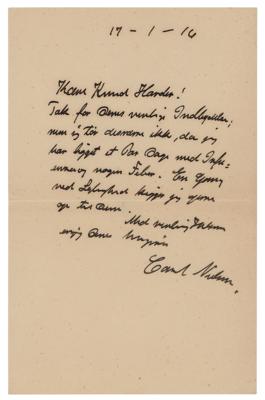 17-1-16
Kære Knud Harder!
Tak for Deres venlige Indbydelse;
men jeg tør desværre ikke, da jeg
har ligget et Par Dage med Influ-
enza og nogen Feber. En Gang
ved Lejlighed kigger jeg gerne
op til Dem.
Med venlig Hilsen
Deres
Carl Nielsen.